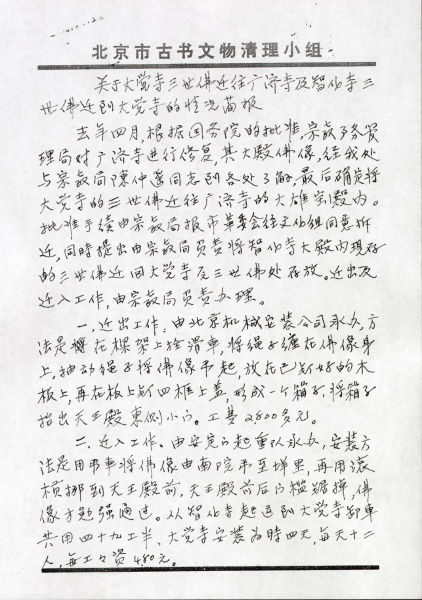 北京市古书文物清理小组
关于大觉寺三世佛迁往广济寺及智化寺三
世佛迁到大觉寺的情况简报
去年四月,根据国务院的批准,宗教事务管
理局对广济寺进行修复,其大殿佛像,经我处
与宗教局陈仲莲同志到各处了解,最后确定将
大觉寺的三世佛迁往广济寺的大雄宝殿内。
批准手续由宗教局报市革委会经文化组同意拆
迁,同时提出由宗教局负责将智化寺大殿内现存
的三世佛迁回大觉寺无三世佛处存放。迁出及
迁入工作,由宗教局负责办理。
一、迁出工作:由北京机械安装公司承办,方
法是在樑架上拴滑車,将绳子缠在佛像身
上,抽动绳子将佛像吊起,放在已钉好的木
板上,再在板上钉四框上盖,形成一个箱子,将箱子
抬出天王殿東側小门。工费2,800多元。
二、迁入工作。由安定门起重队承办,安装方
法是用吊車将佛像由南院吊至墙里,再用滚
槓挪到天王殿前,天王殿前后门槛锯掉,佛
像才勉强通过。从智化寺起运到大觉寺卸車
共用四十九工半、大觉寺安装为时四天,每天十二
人,每工工资4.80元。